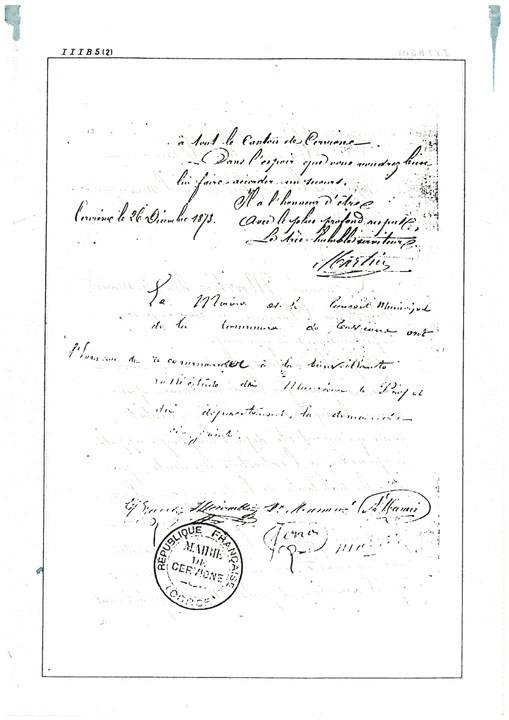 IIIB5(2)
à tout le Canton de Cervione.
Dans l'espoir que vous voudrez bien
lui faire accorder un secours.
Il a l'honneur d'être
Cervione le 26 Décembre 1873. Avec le plus profond respect,
Le très humble serviteur
Martin
Le Maire et le Conseil Municipal
de la Commune de Cervione ont
l'honneur de recommander à la bienveillante
sollicitude de Monsieur le Préfet
du département, la demande
RÉPUBLIQUE FRANÇAISE
MAIRIE
DE
CERVIONE
(CORSE)